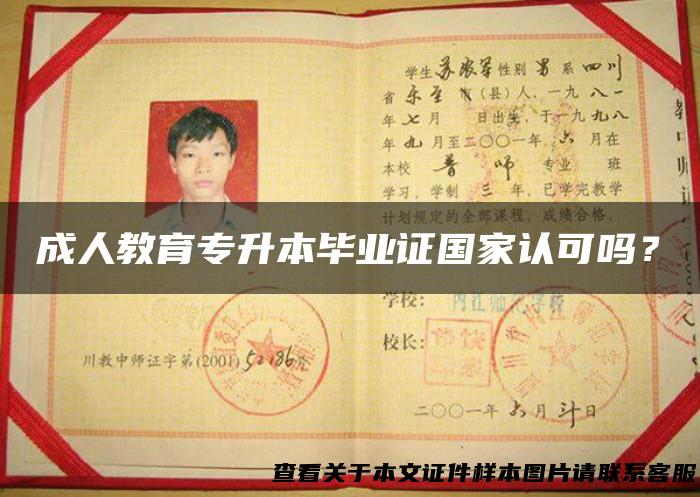 学生 苏 性别 男 系 四川
省 乐至 市(县)人,一九八一
年 七 月 日出生,于一九九八
年 九 月至二〇〇一年 六 月在
本校 普师 专业 班
学习,学制 三 年,已学完教学
计划规定的全部课程,成绩合格,
成人教育专升本毕业证国家认可吗?
学校: 内江师范学校
校长:
川教中师证字第(2001)52186号
二〇〇一年 六 月 日
查看关于本文证件样本图片请联系客服